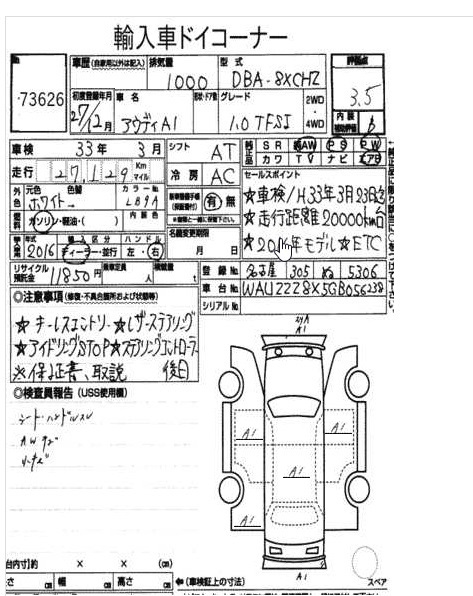 輸入車ドイコーナー
No 73626
車歴 (自家用以外は記入) 排気量 1000 型式 DBA-8XCHZ 評価点 3.5
初度登録年月 27/12月 車名 アウディA1 形状・ドア数 グレード 1.0 TFSI 2WD・4WD 内装補助評価 b
車検 33年 3月 シフト AT 純正品 SR AW PS PW
カワ TV ナビ エアB
走行 27,129 Km マイル 冷房 AC セールスポイント
外色 元色 ホワイト 色替 カラーNo. L89A 新車整備手帳(保証書付) 有・無 ★車検/H33年3月23日迄
ガソリン・軽油・( ) 内装色 ★走行距離20000km台
年式 2016 輸入区分 ディーラー・並行 ハンドル 左・右 名義変更期限 月 日 ★2016年モデル★ETC
リサイクル預託金 11850円 乗車定員 人 積載量 t 登録No. 名古屋 305 ぬ 5306
車台No. WAUZZZ8X5GB056238
シリアルNo.
◎注意事項 (修復・不具合箇所および状態等)
★キーレスエントリー★レザーステアリング
★アイドリングSTOP★ステアリングコントローラー
※保証書、取説 後日
◎検査員報告 (USS使用欄)
シート・ハンドルスレ
AWキズ
A1
A1
A1
A1
A1
A1
台内寸)約 × × (㎝)
さ ㎝ 幅 ㎝ 高さ ㎝ ←(車検証上の寸法)
スペア